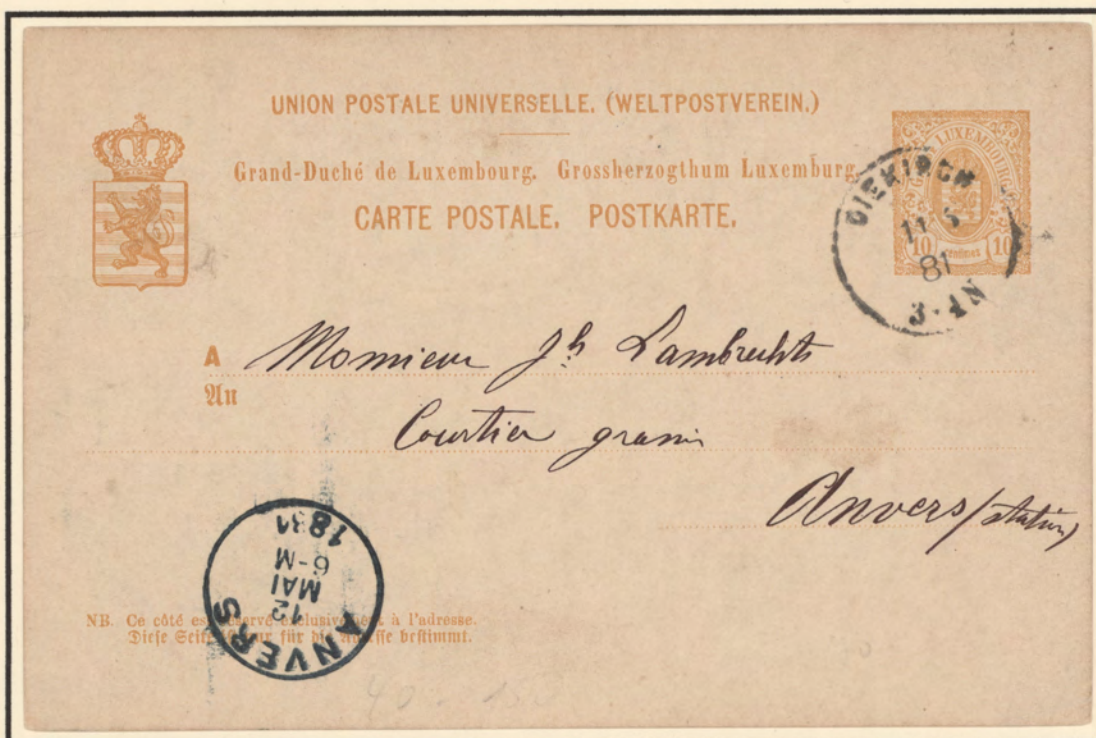 UNION POSTALE UNIVERSELLE. (WELTPOSTVEREIN.)
Grand-Duché de Luxembourg. Grossherzogthum Luxemburg.
CARTE POSTALE. POSTKARTE.
LUXEMBOURG
10 Centimes 10
DIEKIRCH
11 5
81
3-4N
A Monsieur Jh Lambrechts
An
Courtier grains
Anvers (station)
ANVERS
12
MAI
6-M
1881
NB. Ce côté est réservé exclusivement à l'adresse.
Diese Seite ist nur für die Adresse bestimmt.